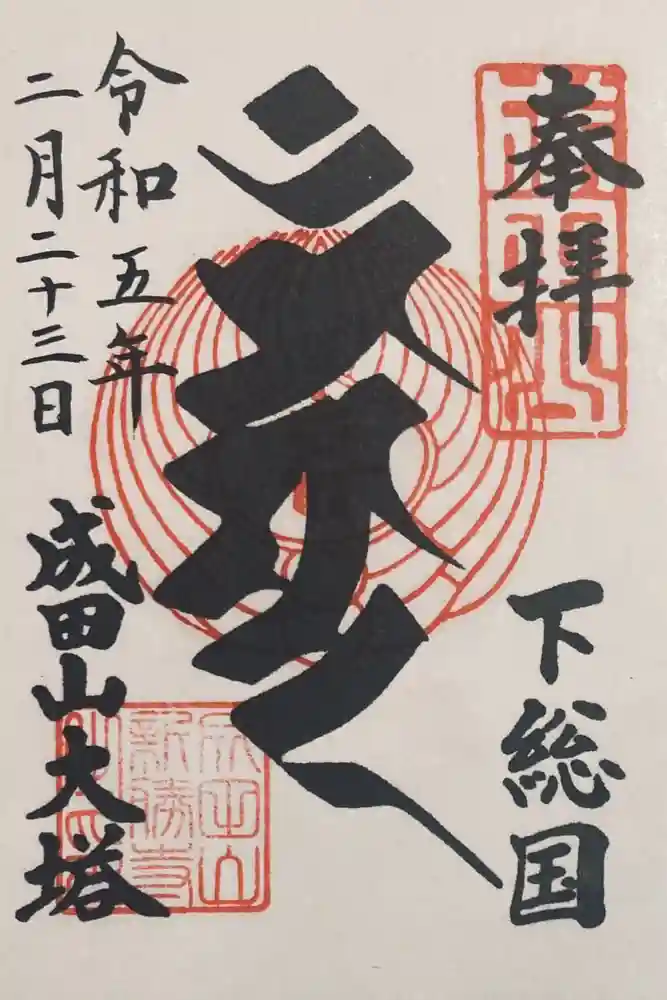 奉拝
成田山
下総国
令和五年
二月二十三日
成田山大塔
成田山
新勝寺